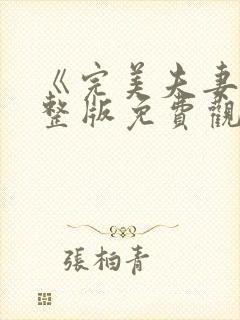 《完美夫妻
整版免費觀
張柏青